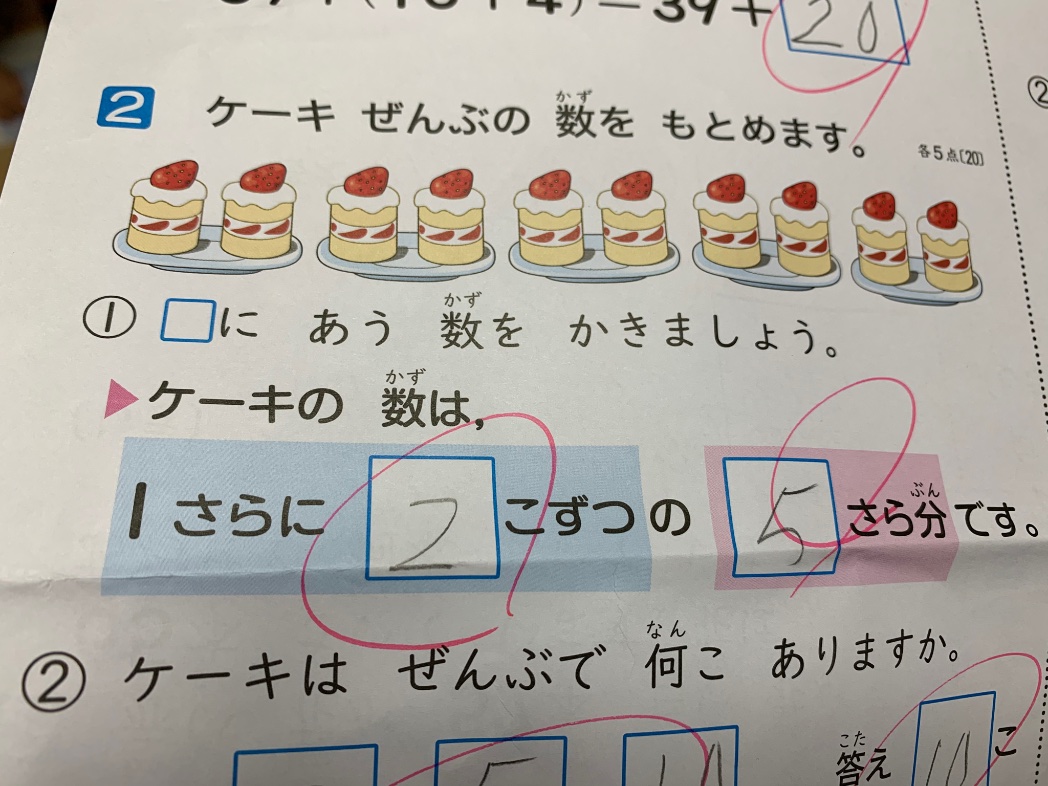 =39+20
2 ケーキ ぜんぶの 数を もとめます。
かず
各5点〔20〕
① □に あう 数を かきましょう。
かず
▶ケーキの 数は,
かず
1さらに 2 こずつの 5 さら分です。
ぶん
② ケーキは ぜんぶで 何こ ありますか。
なん
5
答え 10 こ
こた
②